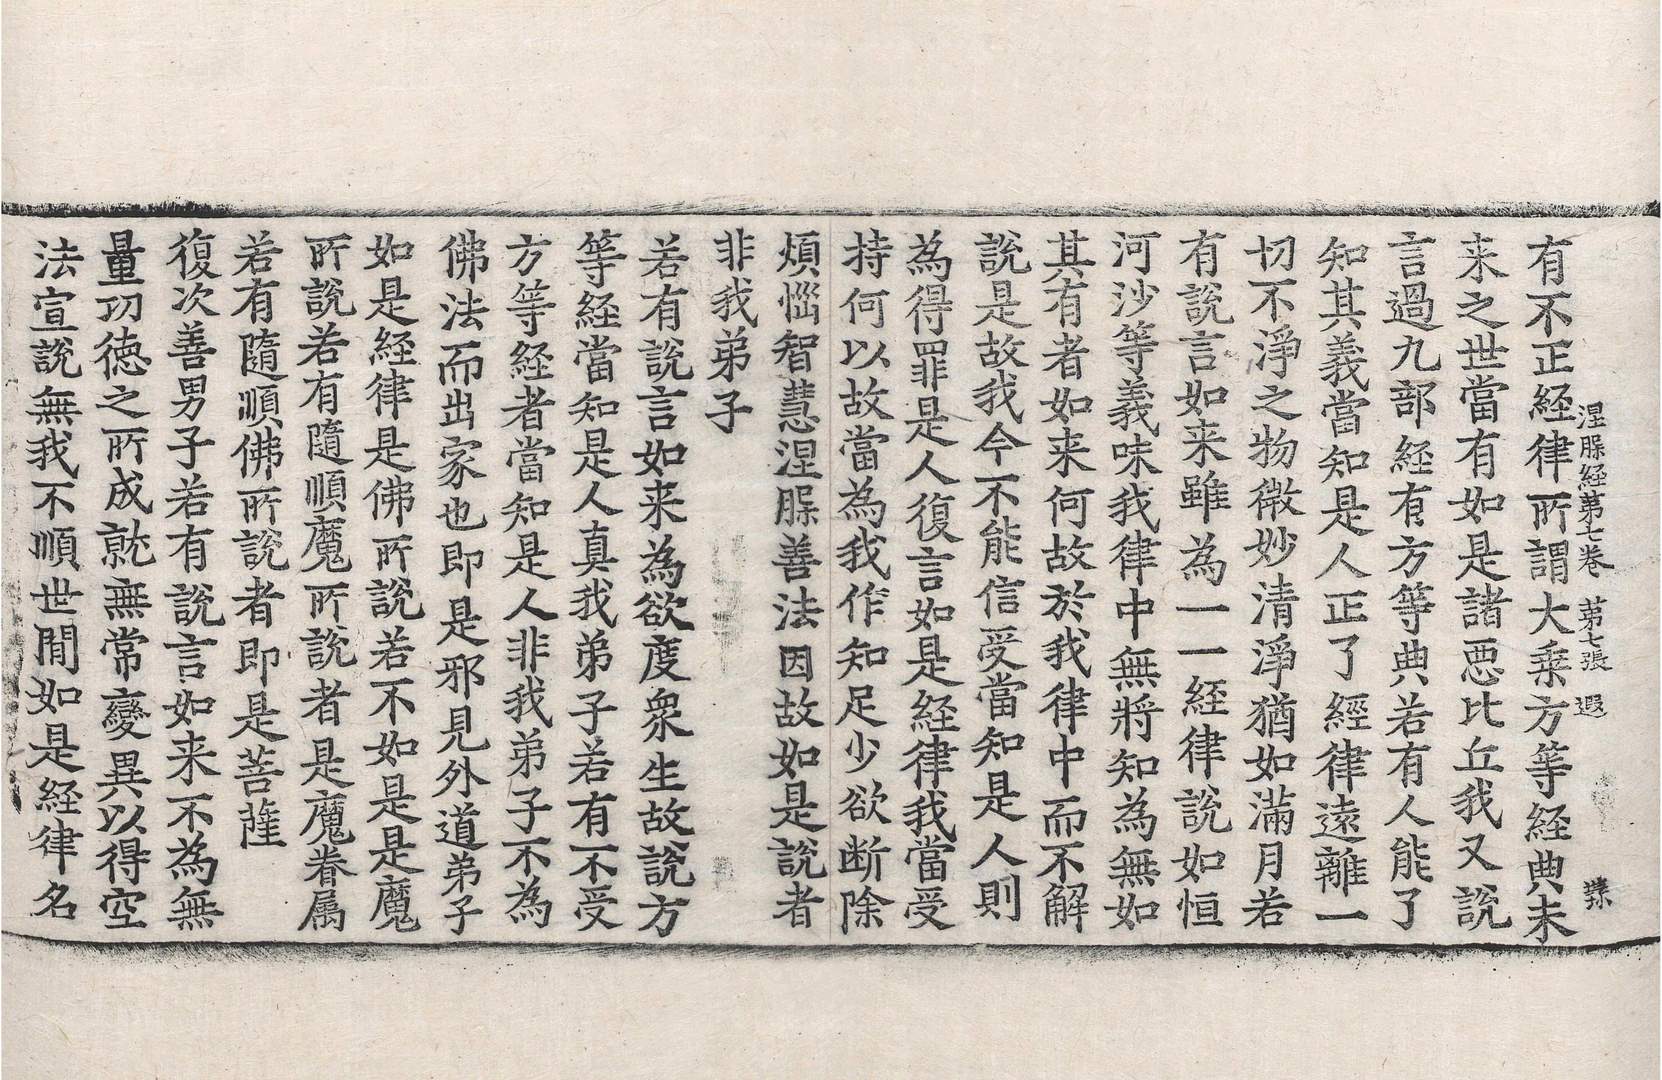 涅槃経第七卷 第七張 遐
有不正経律所謂大乗方等経典未
来之世當有如是諸惡比丘我又説
言過九部経有方等典若有人能了
知其義當知是人正了經律遠離一
切不淨之物微妙清淨猶如滿月若
有説言如来雖為一一経律説如恒
河沙等義味我律中無將知為無如
其有者如来何故於我律中而不解
説是故我今不能信受當知是人則
為得罪是人復言如是経律我當受
持何以故當為我作知足少欲断除
煩惱智慧涅槃善法因故如是説者
非我弟子
若有説言如来為欲度衆生故説方
等経當知是人真我弟子若有不受
方等経者當知是人非我弟子不為
佛法而出家也即是邪見外道弟子
如是経律是佛所説若不如是是魔
所説若有隨順魔所説者是魔眷属
若有隨順佛所説者即是菩薩
復次善男子若有説言如来不為無
量功徳之所成就無常變異以得空
法宣説無我不順世間如是経律名